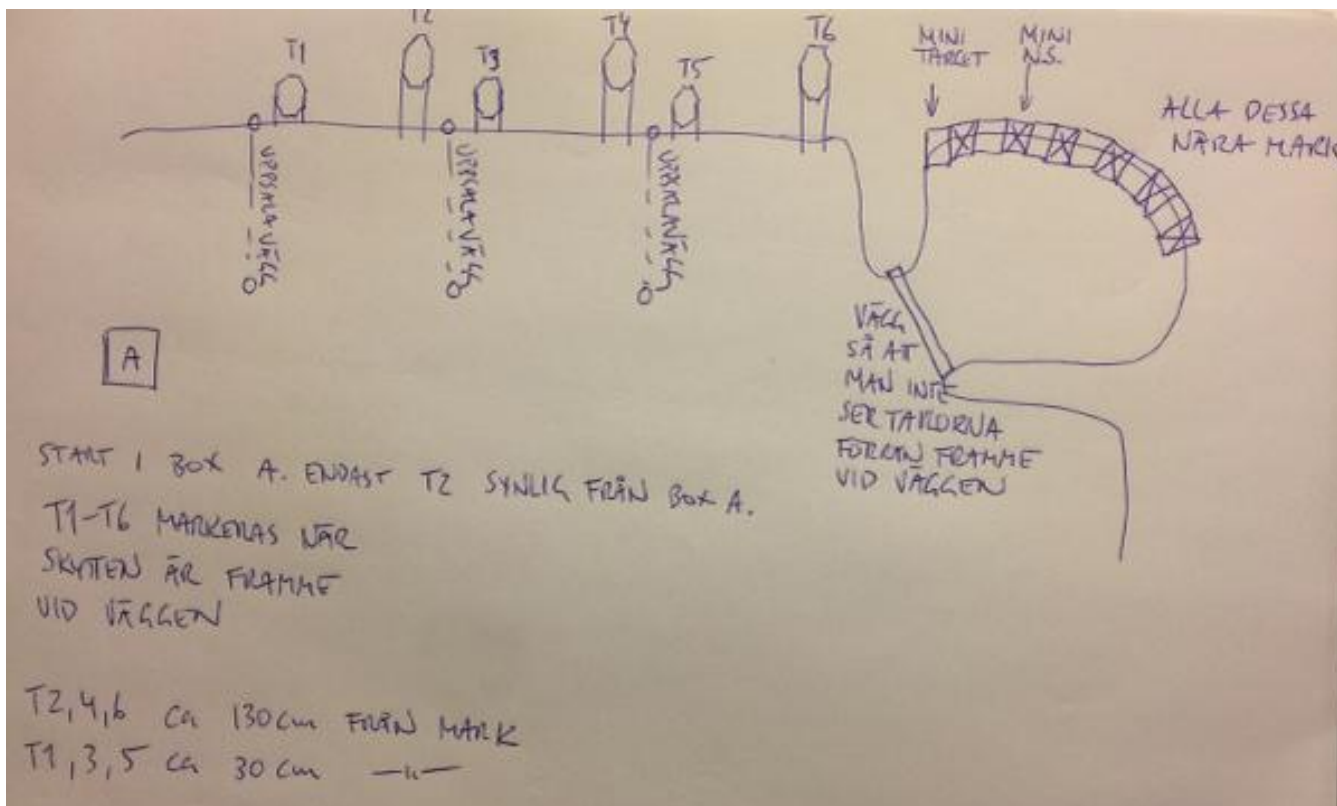 T1
T2
T3
T4
T5
T6
MINI
TARGET
MINI
N.S.
ALLA DESSA
NÄRA MARK
UPPSALAVÄGG
UPPSALAVÄGG
UPPSALAVÄGG
A
VÄGG
SÅ AT
MAN INTE
SER TAVLORNA
FÖRRÄN FRAMME
VID VÄGGEN
START I BOX A. ENDAST T2 SYNLIG FRÅN BOX A.
T1-T6 MARKERAS NÄR
SKYTTEN ÄR FRAMME
VID VÄGGEN
T2,4,6 ca 130cm FRÅN MARK
T1,3,5 ca 30 cm —"—